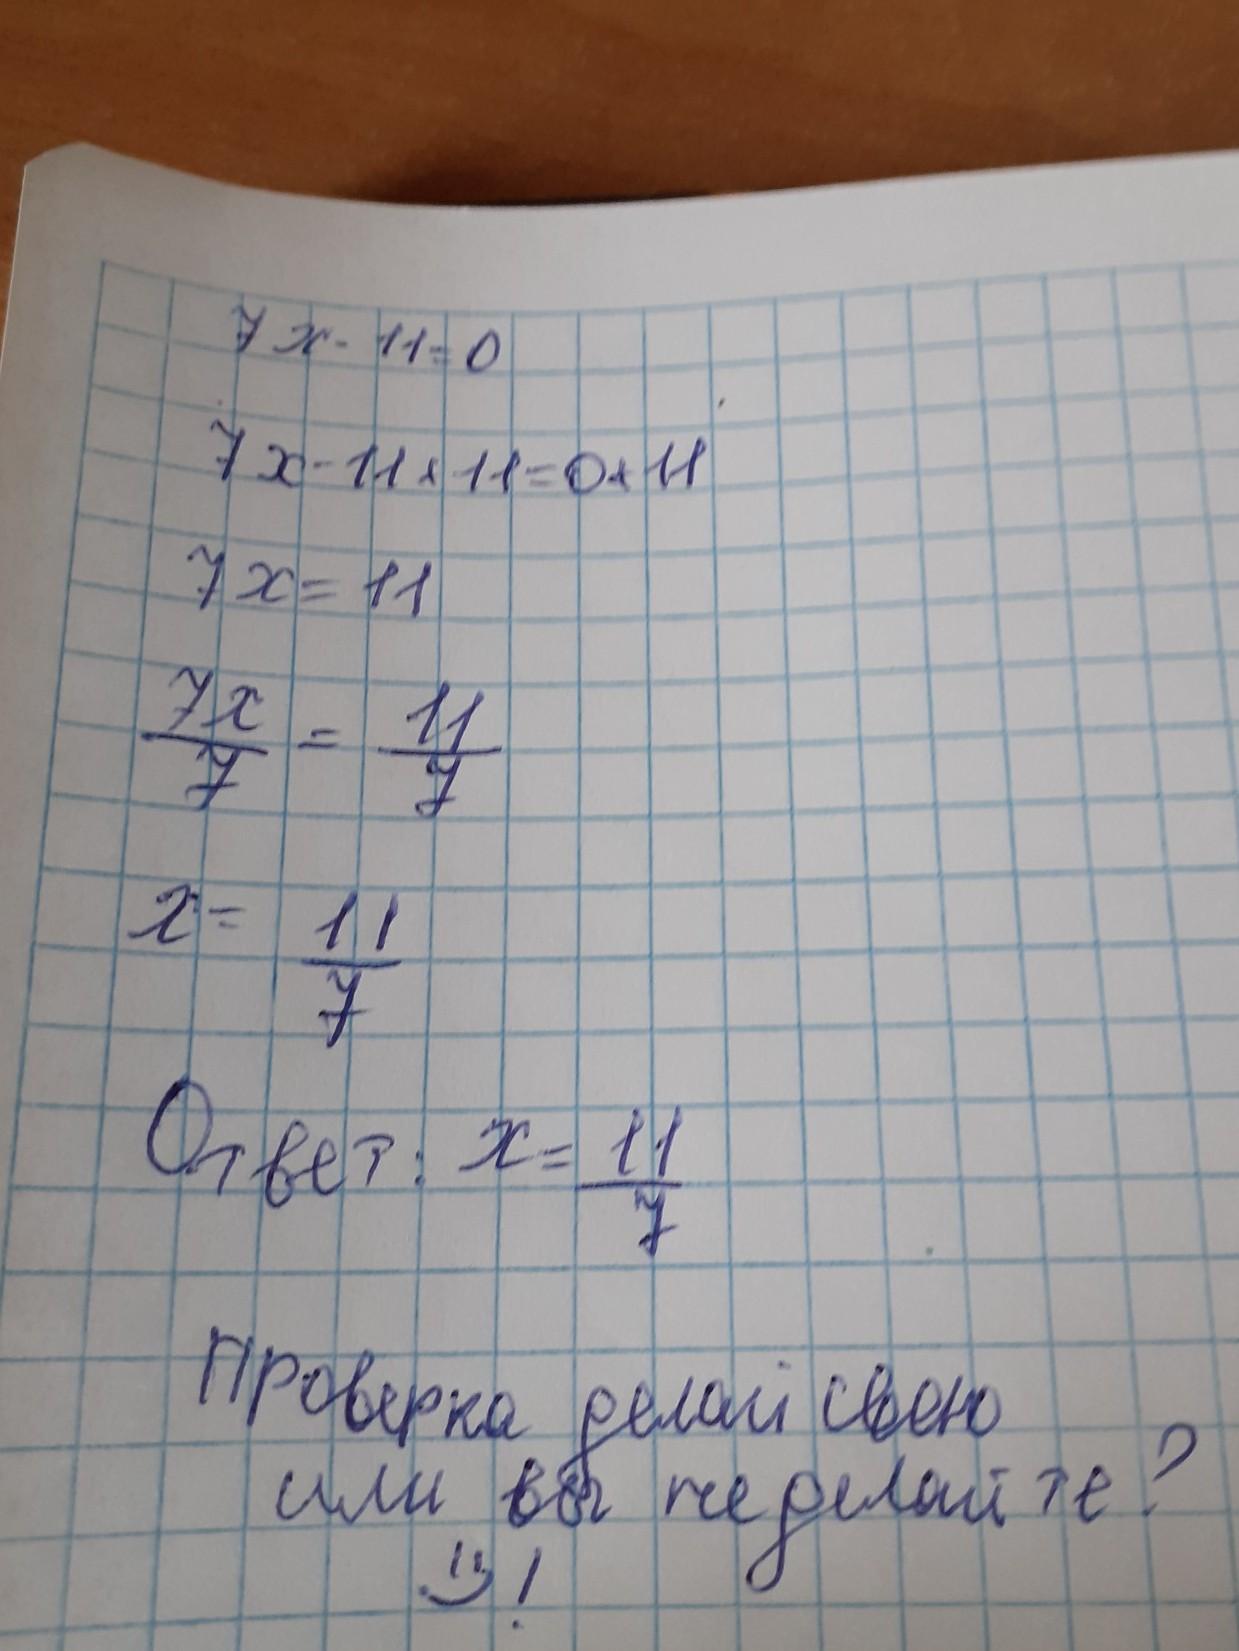 7x-11=0
7x-11+11=0+11
7x=11
7x/7 = 11/7
x= 11/7
Ответ: x= 11/7
Проверка делай свою
или вы не делайте?
!